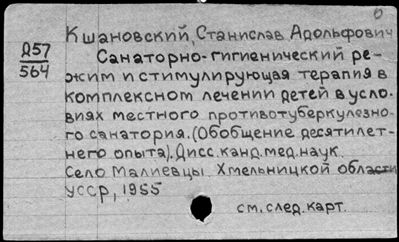 Кшановский, Станислав Адольфович
Д57
564
Санаторно-гигиенический ре-
жим и стимулирующая терапия в
комплексном лечении детей в усло-
виях местного противотуберкулезно-
го санатория. (Обобщение десятилет-
него опыта). Дисс. канд. мед. наук.
Село Малиевцы Хмельницкой области
УССР, 1955
см. след. карт.